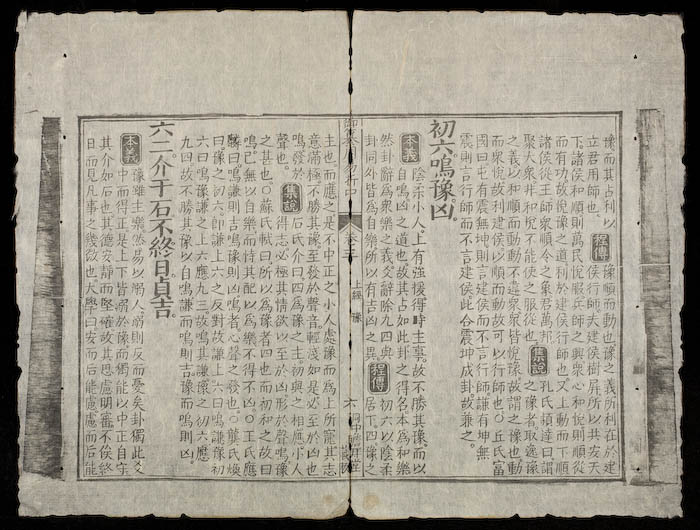 豫而其占利以
立君用師也。
程傳
豫順而動也豫之義所利在於建
侯行師夫建侯樹屏所以共安天
下諸侯和順則萬民悅服兵師之興衆心和悅則順從
而有功故悅豫之道利於建侯行師也又上動而下順
諸侯從王師衆順令之象君萬邦
聚大衆非和悅不能使之服從也
集說
孔氏穎達曰謂
之豫者取逸豫
之義以和順而動動不違衆衆皆悅豫故謂之豫也動
而衆悅故利建侯以順而動故可以行師也○丘氏富
國曰屯有震無坤則言建侯而不言行師謙有坤無
震則言行師而不言建侯此合震坤成卦故兼之。
初六。鳴豫。凶。
本義
陰柔小人。上有強援得時主事。故不勝其豫。而以
自鳴凶之道也。故其占如此卦之得名本爲和樂
然卦辭爲衆樂之義爻辭除九四與
卦同外皆爲自樂所以有吉凶之異
程傳
初六以陰柔
居下四豫之
御纂周易折中
卷三
上經 豫
六
主也而應之是不中正之小人處豫而爲上所寵其志
意滿極不勝其豫至發於聲音輕淺如是必至於凶也
鳴發於
聲也。
集說
石氏介曰四爲豫之主初與之相應小人
得志必極其情欲以至於凶形於聲鳴豫
之甚也○蘇氏軾曰所以爲豫者四也而初和之故曰
鳴已無以自樂而恃其配以爲樂不得不凶○王氏應
麟曰鳴謙則吉鳴豫則凶鳴者心聲之發也○龔氏煥
曰豫之初六即謙上六之反對故謙上六曰鳴謙豫初
六曰鳴豫謙之上六應九三。故鳴其謙豫之初六應
九四故不勝其豫以自鳴謙而鳴則吉。豫而鳴則凶
六二。介于石。不終日。貞吉。
本義
豫雖主樂然易以溺人。溺則反而憂矣卦獨此爻
中而得正是上下皆溺於豫而獨能以中正自守
其介如石也其德安靜而堅確故其思慮明審不俟終
日而見凡事之幾微也大學曰安而后能慮慮而后能